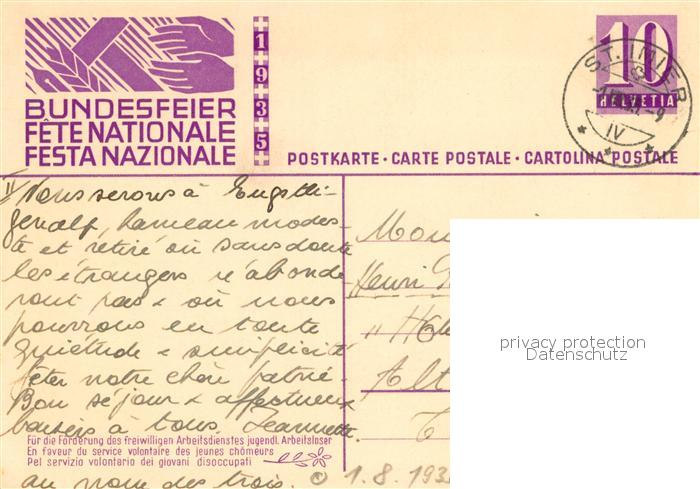 BUNDESFEIER
FÊTE NATIONALE
FESTA NAZIONALE
1935
10
HELVETIA
ST. IMIER
IV
POSTKARTE · CARTE POSTALE · CARTOLINA POSTALE
II Nous serons à Engstli-
genalp, hameau modes-
te et retiré où sans doute
les étrangers n'abonde
ront pas & où nous
pourrons en toute
quiétude & simplicité
fêter notre chère patrie.
Bon séjour & affectueux
baisers à tous. Jeannette.
au nom des trois.
Für die Förderung des freiwilligen Arbeitsdienstes jugendl. Arbeitsloser
En faveur du service volontaire des jeunes chômeurs
Pel servizio volontario dei giovani disoccupati
Henri
privacy protection
Datenschutz
1.8.193